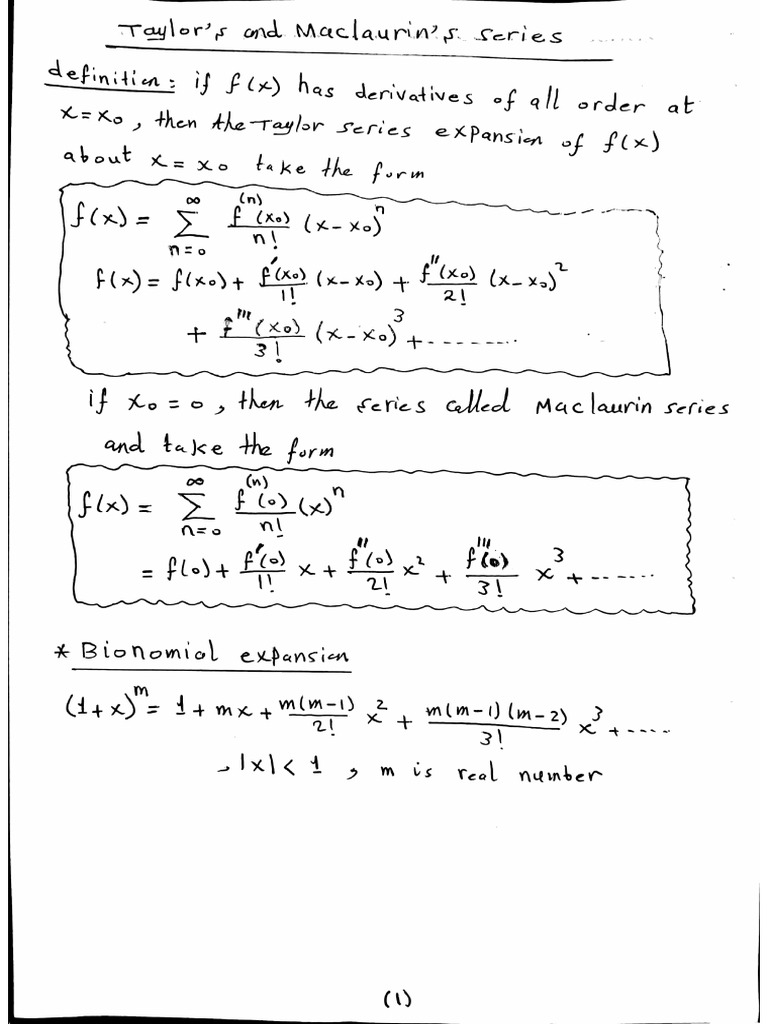 Taylor's and Maclaurin's series ......
definition: if f(x) has derivatives of all order at
x = x₀, then the Taylor series expansion of f(x)
about x = x₀ take the form
f(x) = ∑_{n=0}^{∞} f⁽ⁿ⁾(x₀)/n! (x-x₀)ⁿ
f(x) = f(x₀) + f'(x₀)/1! (x-x₀) + f''(x₀)/2! (x-x₀)²
+ f'''(x₀)/3! (x-x₀)³ + --------
if x₀ = 0, then the series called Maclaurin series
and take the form
f(x) = ∑_{n=0}^{∞} f⁽ⁿ⁾(0)/n! (x)ⁿ
= f(0) + f'(0)/1! x + f''(0)/2! x² + f'''(0)/3! x³ + ------
* Bionomial expansion
(1+x)ᵐ = 1 + mx + m(m-1)/2! x² + m(m-1)(m-2)/3! x³ + ----
, |x| < 1 , m is real number
(1)